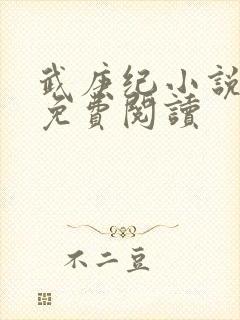 武庚纪小説
免費閱讀
不二豆